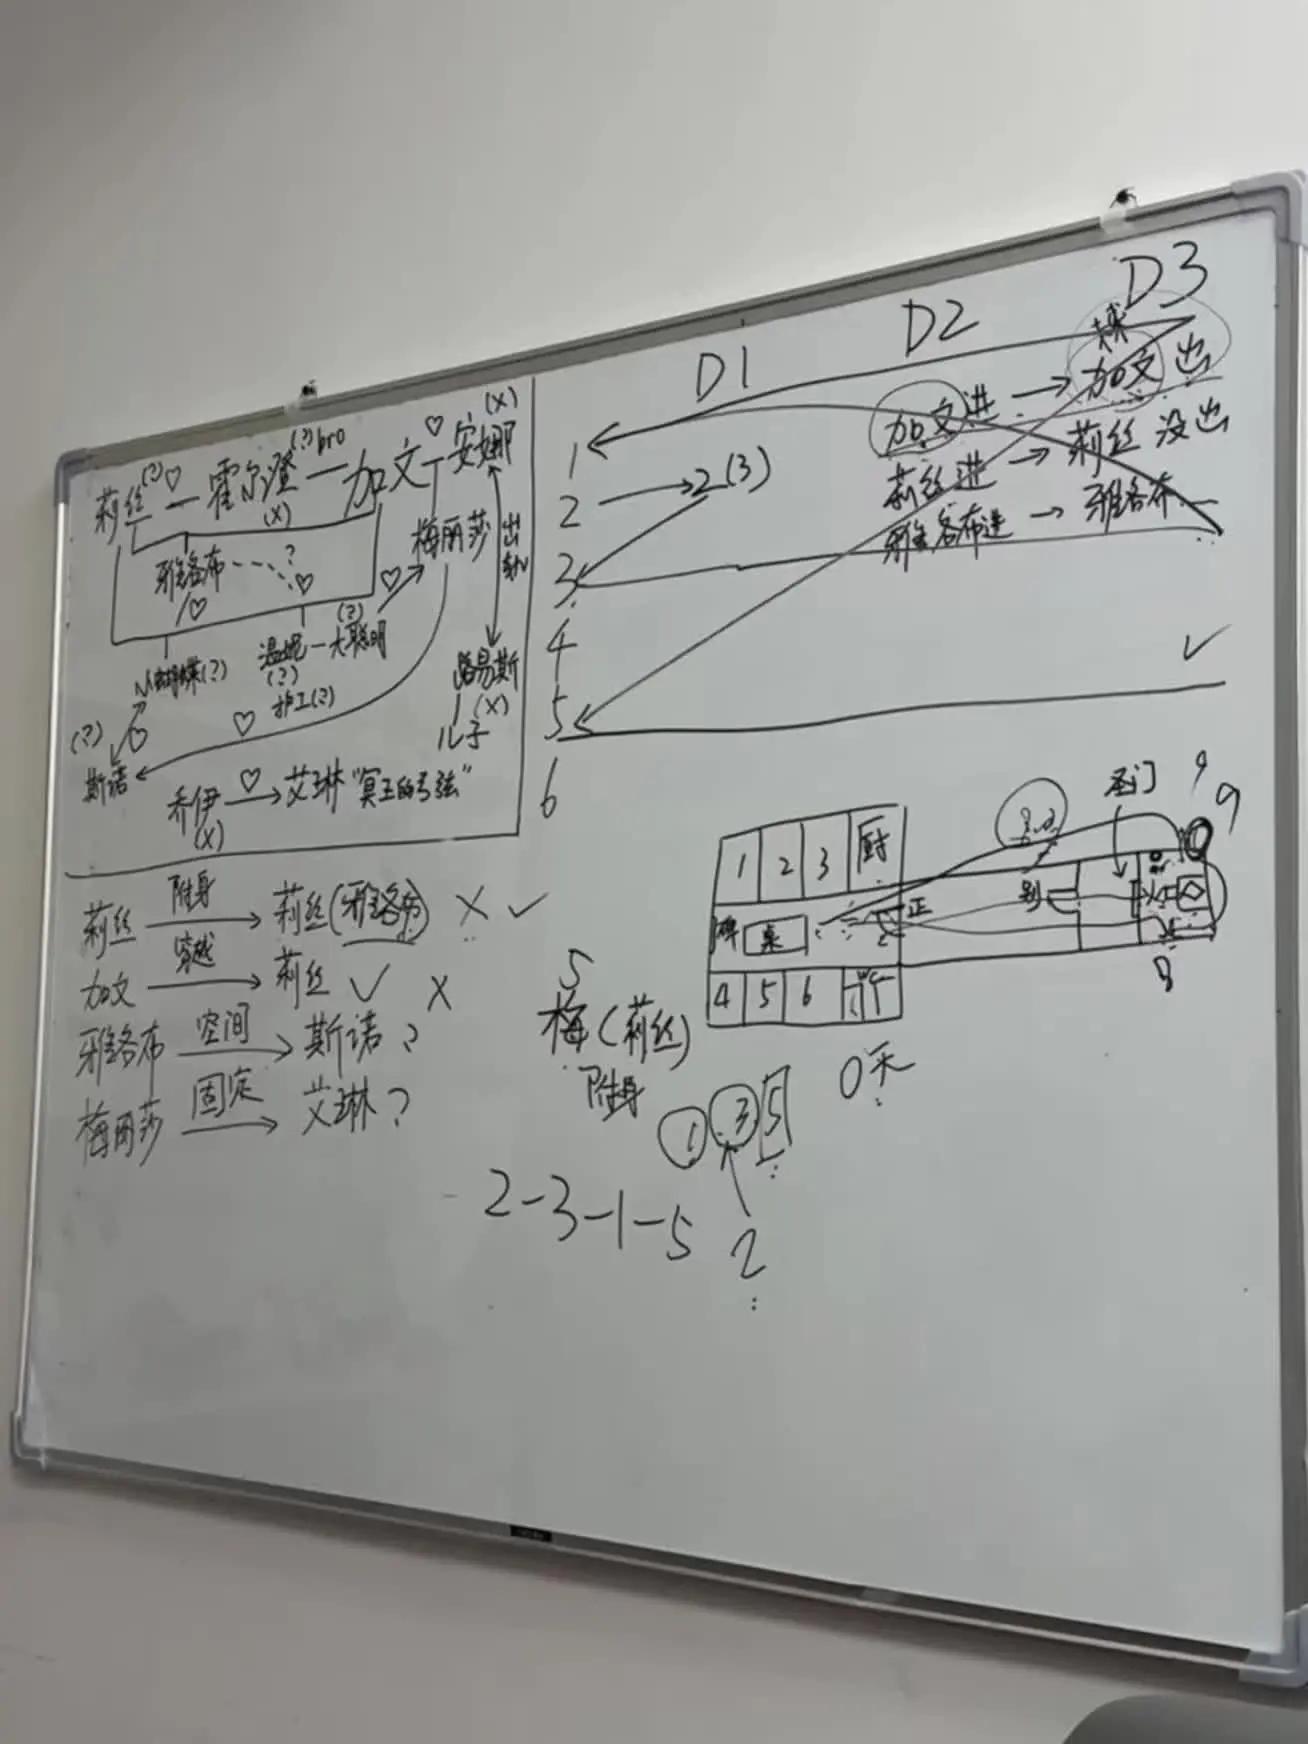 莉丝(?)♡—霍尔澄(?)bro—加文♡—安娜(X)
(X)
雅各布---?
♡ ♡ ♡
梅丽莎 出轨
温妮—大聪明(?)
蝴蝶(?) (?)
护工(?)
路易斯
(X)
儿子
(?) ♡ ♡
斯诺
乔伊 ♡→ 艾琳 "冥王的弓弦"
(X)
D1 D2 D3
1
2 → 2(3)
3
4
5
6
加文进 → 加文出
莉丝进 → 莉丝没出
雅各布进 → 雅各布
✓
莉丝 附身→ 莉丝(雅各布) X ✓
加文 穿越→ 莉丝 ✓ X
雅各布 空间→ 斯诺?
梅丽莎 固定→ 艾琳?
5
梅(莉丝)
附身
1 2 3 厨
碑 桌 正
4 5 6 厅
别
圣门
9
8
0天
1 3 5
2-3-1-5 2